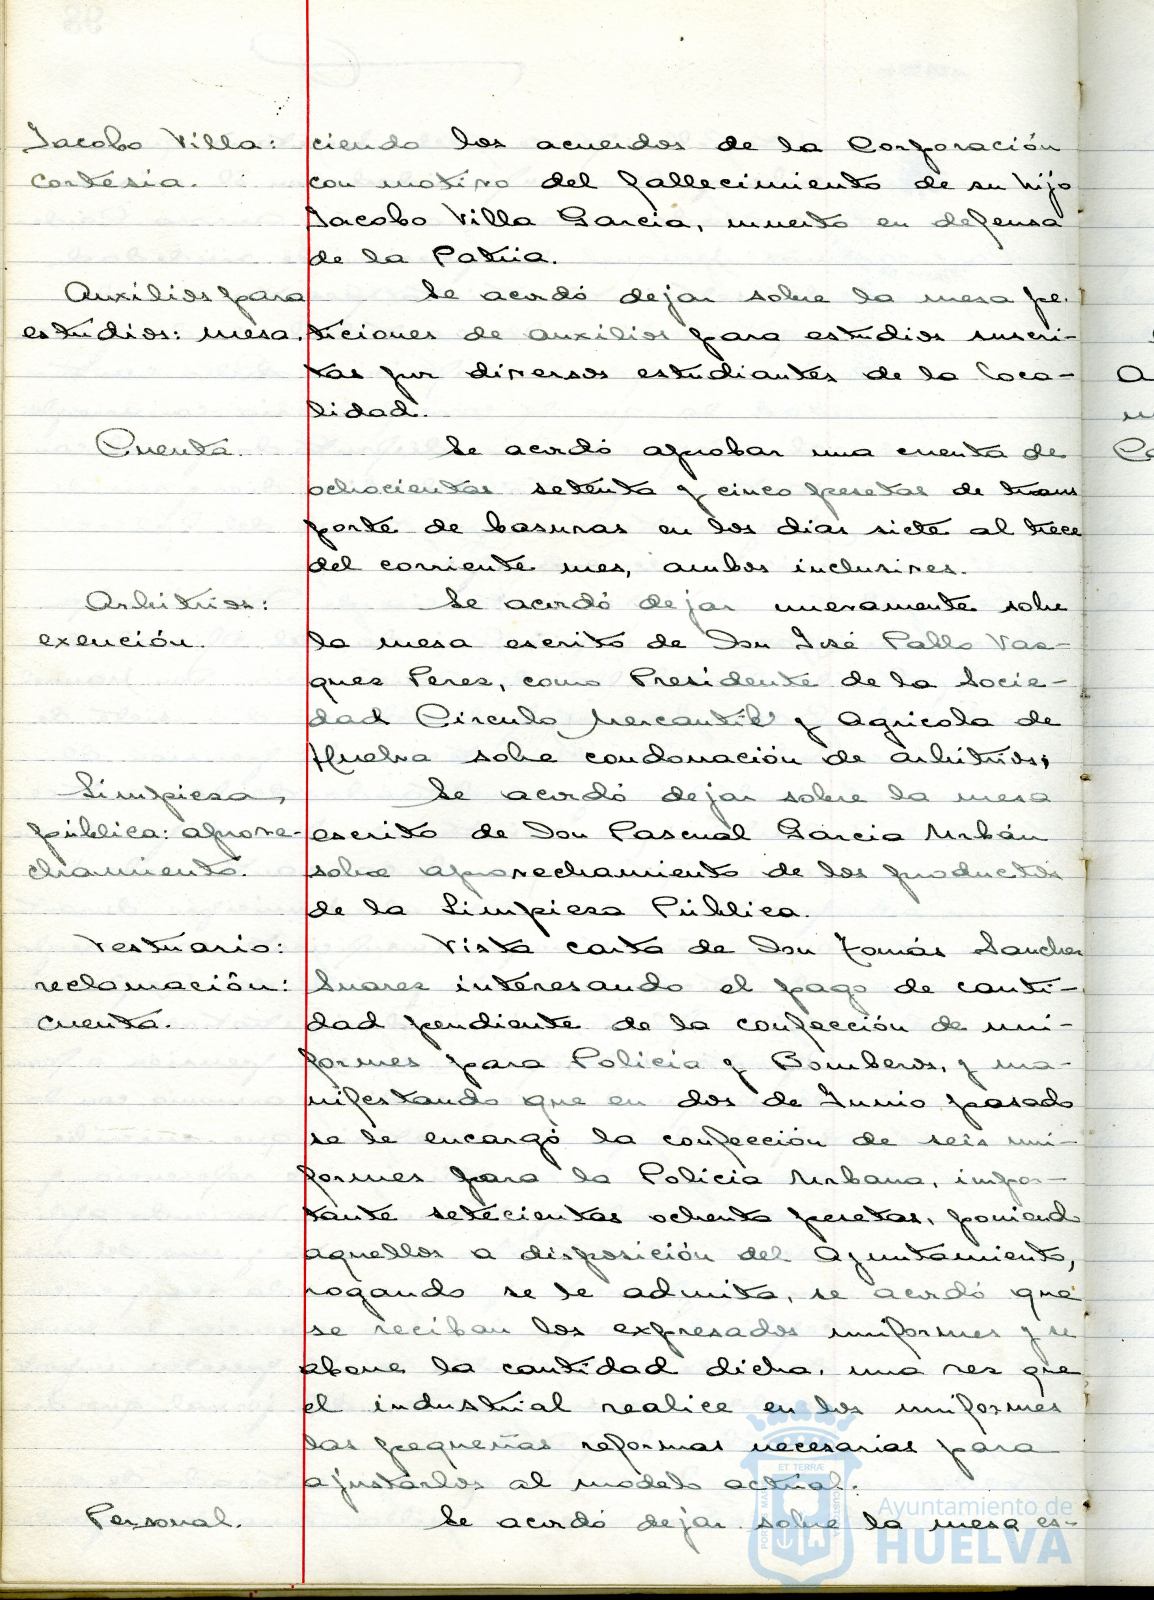 Jacobo Villa:
cortesia.
ciendo los acuerdos de la Corporación
con motivo del fallecimiento de su hijo
Jacobo Villa Garcia, muerto en defensa
de la Patria.
Auxilios para
estudios: mesa.
Se acordó dejar sobre la mesa pe-
ticiones de auxilios para estudios suscri-
tas por diversos estudiantes de la loca-
lidad.
Cuenta.
Se acordó aprobar una cuenta de
ochocientas setenta y cinco pesetas de trans
porte de basuras en los dias siete al trece
del corriente mes, ambos inclusives.
Arbitrios:
exención.
Se acordó dejar nuevamente sobre
la mesa escrito de Don José Pablo Vaz-
ques Peres, como Presidente de la Socie-
dad Circulo Mercantil y Agricola de
Huelva sobre condonación de arbitrios;
Limpieza
pública: aprove-
chamiento.
Se acordó dejar sobre la mesa
escrito de Don Pascual Garcia Urbán
sobre aprovechamiento de los productos
de la Limpieza Pública.
Vestuario:
reclamación:
cuenta.
Vista carta de Don Tomás Sanchez
Suarez interesando el pago de canti-
dad pendiente de la confección de uni-
formes para Policia y Bomberos, y ma-
nifestando que en dos de Junio pasado
se le encargó la confección de seis uni-
formes para la Policia Urbana, impor-
tante setecientas ochenta pesetas, poniendo
aquellos a disposición del Ayuntamiento,
rogando se le admita, se acordó que
se reciban los expresados uniformes y se
abone la cantidad dicha, una vez que
el industrial realice en los uniformes
las pequeñas reformas necesarias para
ajustarlos al modelo actual.
Personal.
Se acordó dejar sobre la mesa es-
Ayuntamiento de
HUELVA